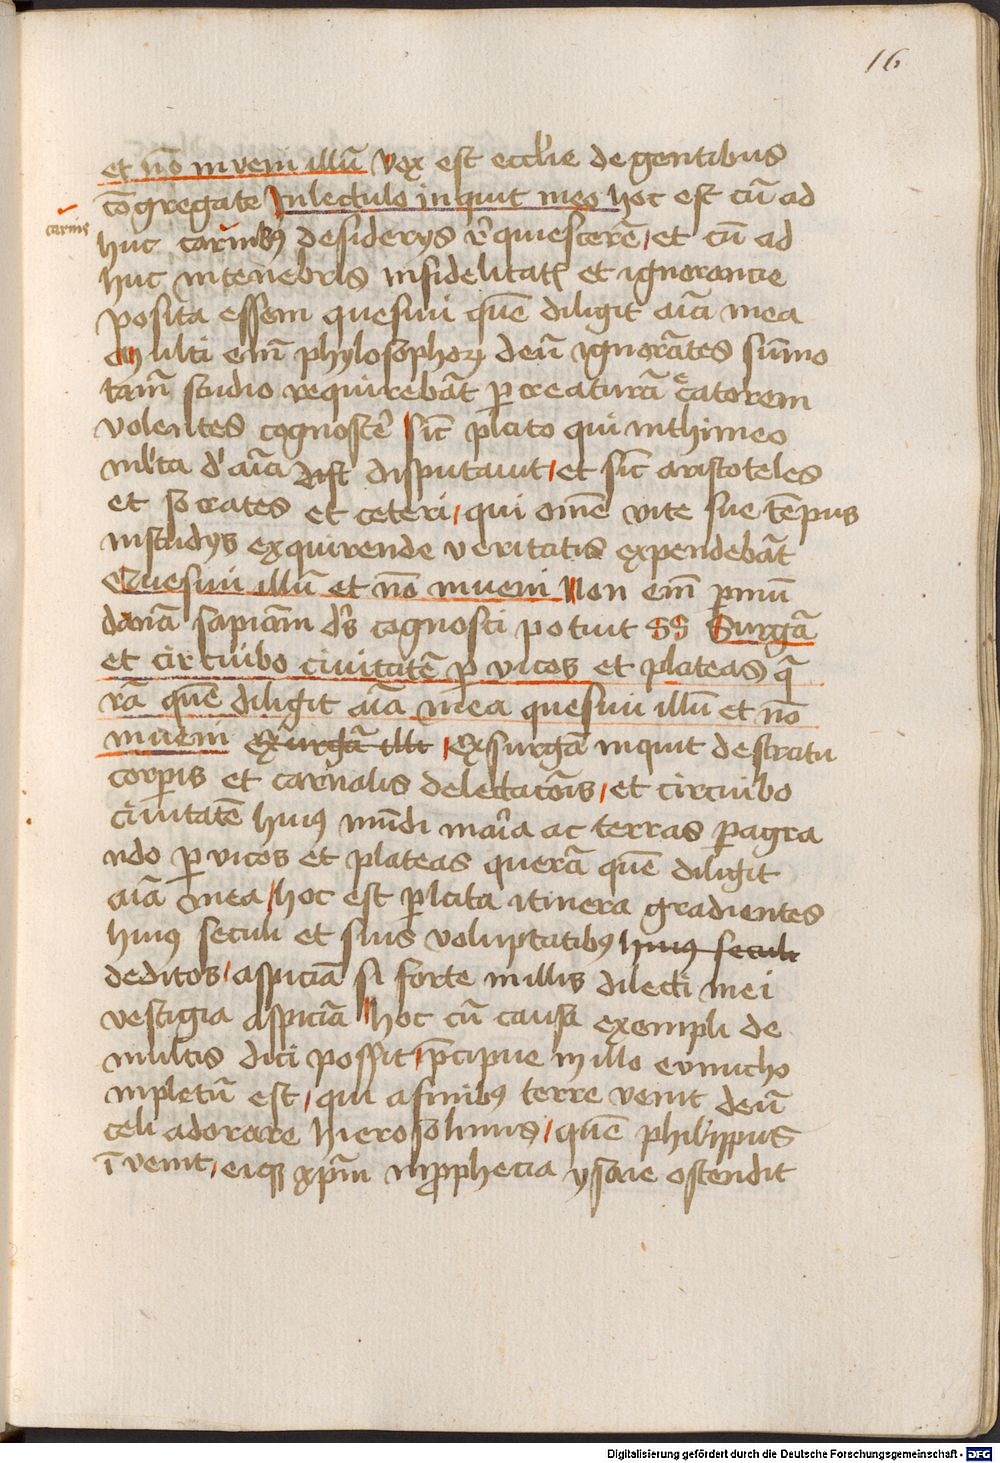 16
et nō inveni illū Vox est eccl'ie de gentibus
cōgregate In lectulo inquit meo hoc est cū ad
carnis
huc carnibꝰ desiderys r̄quiescerē et cū ad
huc in tenebris infidelitatꝭ et ignorancie
posita essem quesiui quē diligit aīa mea
Multi enī phylosophoꝝ deū ignorātes sūmo
tam̄ studio requirebāt ꝑ creaturā c̄atorem
volentes cognoscer̄ sic̄ plato qui in thimeo
ml'ta d' aīa disputauit et sic̄ aristoteles
et socrates et ceteri qui om̄e vite sue tēpus
in studys exquirende veritatis expendebāt
Quesiui illū et nō inueni Non enī ꝑ mū
danā sapiam d's cognosci potuit SS Surgā
et circuibo ciuitatē ꝑ vicos et plateas q̄
rā quē diligit aīa mea quesiui illū et nō
inueni exurgā ill Exsurgā inquit de stratu
corꝑis et carnalis delectacōis et circuibo
ciuitatē huiꝰ mūdi maria ac terras ꝑagra
ndo ꝑ vicos et plateas querā quē diligit
aīa mea hoc est ꝑ lata itinera gradientes
huiꝰ seculi et suis voluptatibꝰ huiꝰ seculi
deditos aspiciā si forte in illis dilecti mei
vestigia aspiciā Hoc cū causa exempli de
multis dici possit p̄cipue in illo eunucho
inpletū est qui a finibꝰ terre venit deū
celi adorare hierosolimis quē philippus
īvenit eiqꝫ xp̄m in ꝓphecia ysaie ostendit
Digitalisierung gefördert durch die Deutsche Forschungsgemeinschaft - DFG